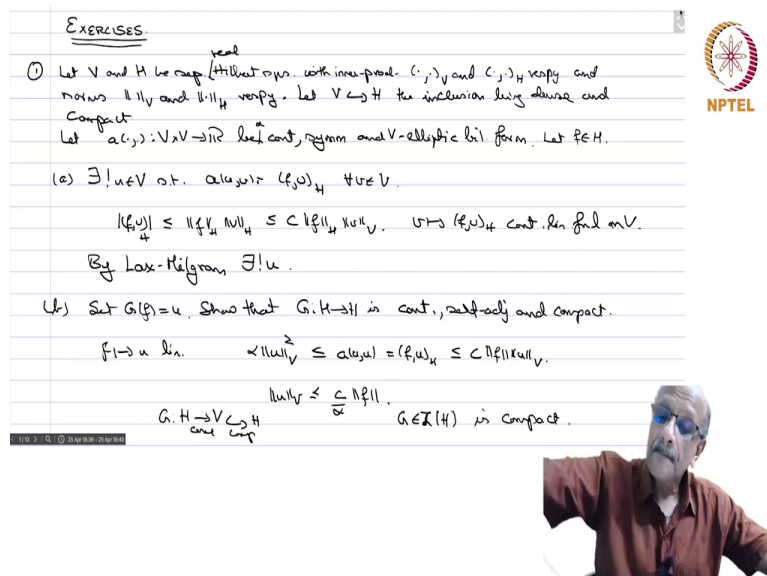 EXERCISES.
real
① Let V and H be sep. Hilbert sps. with inner-prod. (·,·)_V and (·,·)_H respy and
norms ‖·‖_V and ‖·‖_H respy. Let V ↪ H the inclusion being dense and
compact
Let a(·,·): V×V → ℝ be a cont, symm and V-elliptic bil. form. Let f∈H.
(a) ∃! u∈V s.t. a(u,v) = (f,v)_H ∀v∈V.
|(f,v)_H| ≤ ‖f‖_H ‖v‖_H ≤ C‖f‖_H ‖v‖_V. v ↦ (f,v)_H cont. lin fnl on V.
By Lax-Milgram ∃! u.
(b) Set G(f) = u. Show that G: H→H is cont., self-adj and compact.
f ↦ u lin. α‖u‖_V^2 ≤ a(u,u) = (f,u)_H ≤ C‖f‖‖u‖_V.
‖u‖_V ≤ C/α ‖f‖.
G: H → V ↪ H G∈L(H) is compact.
cont comp
NPTEL
1/10 25 Apr 18:38 - 25 Apr 18:40